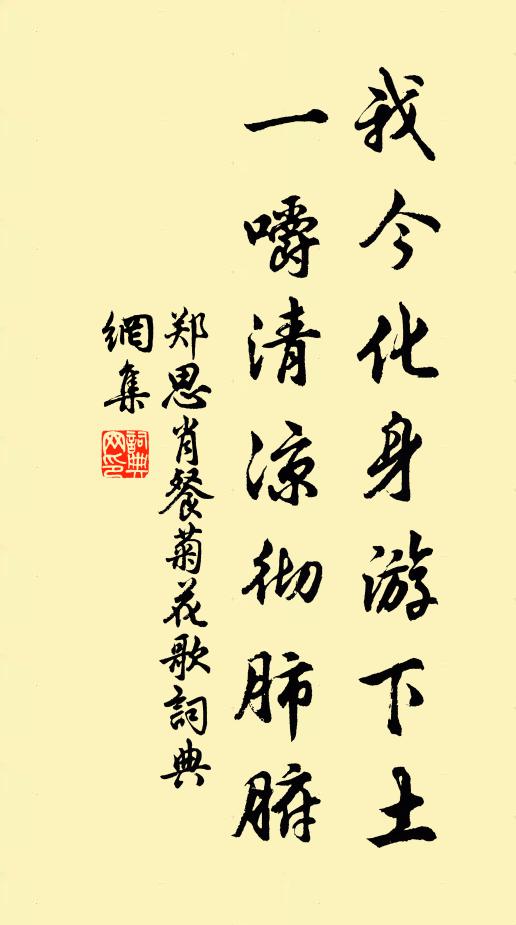 我今化身游下土
一嚼清凉彻肺腑
郑思肖餐菊花歌詞典
網集
詞典網印